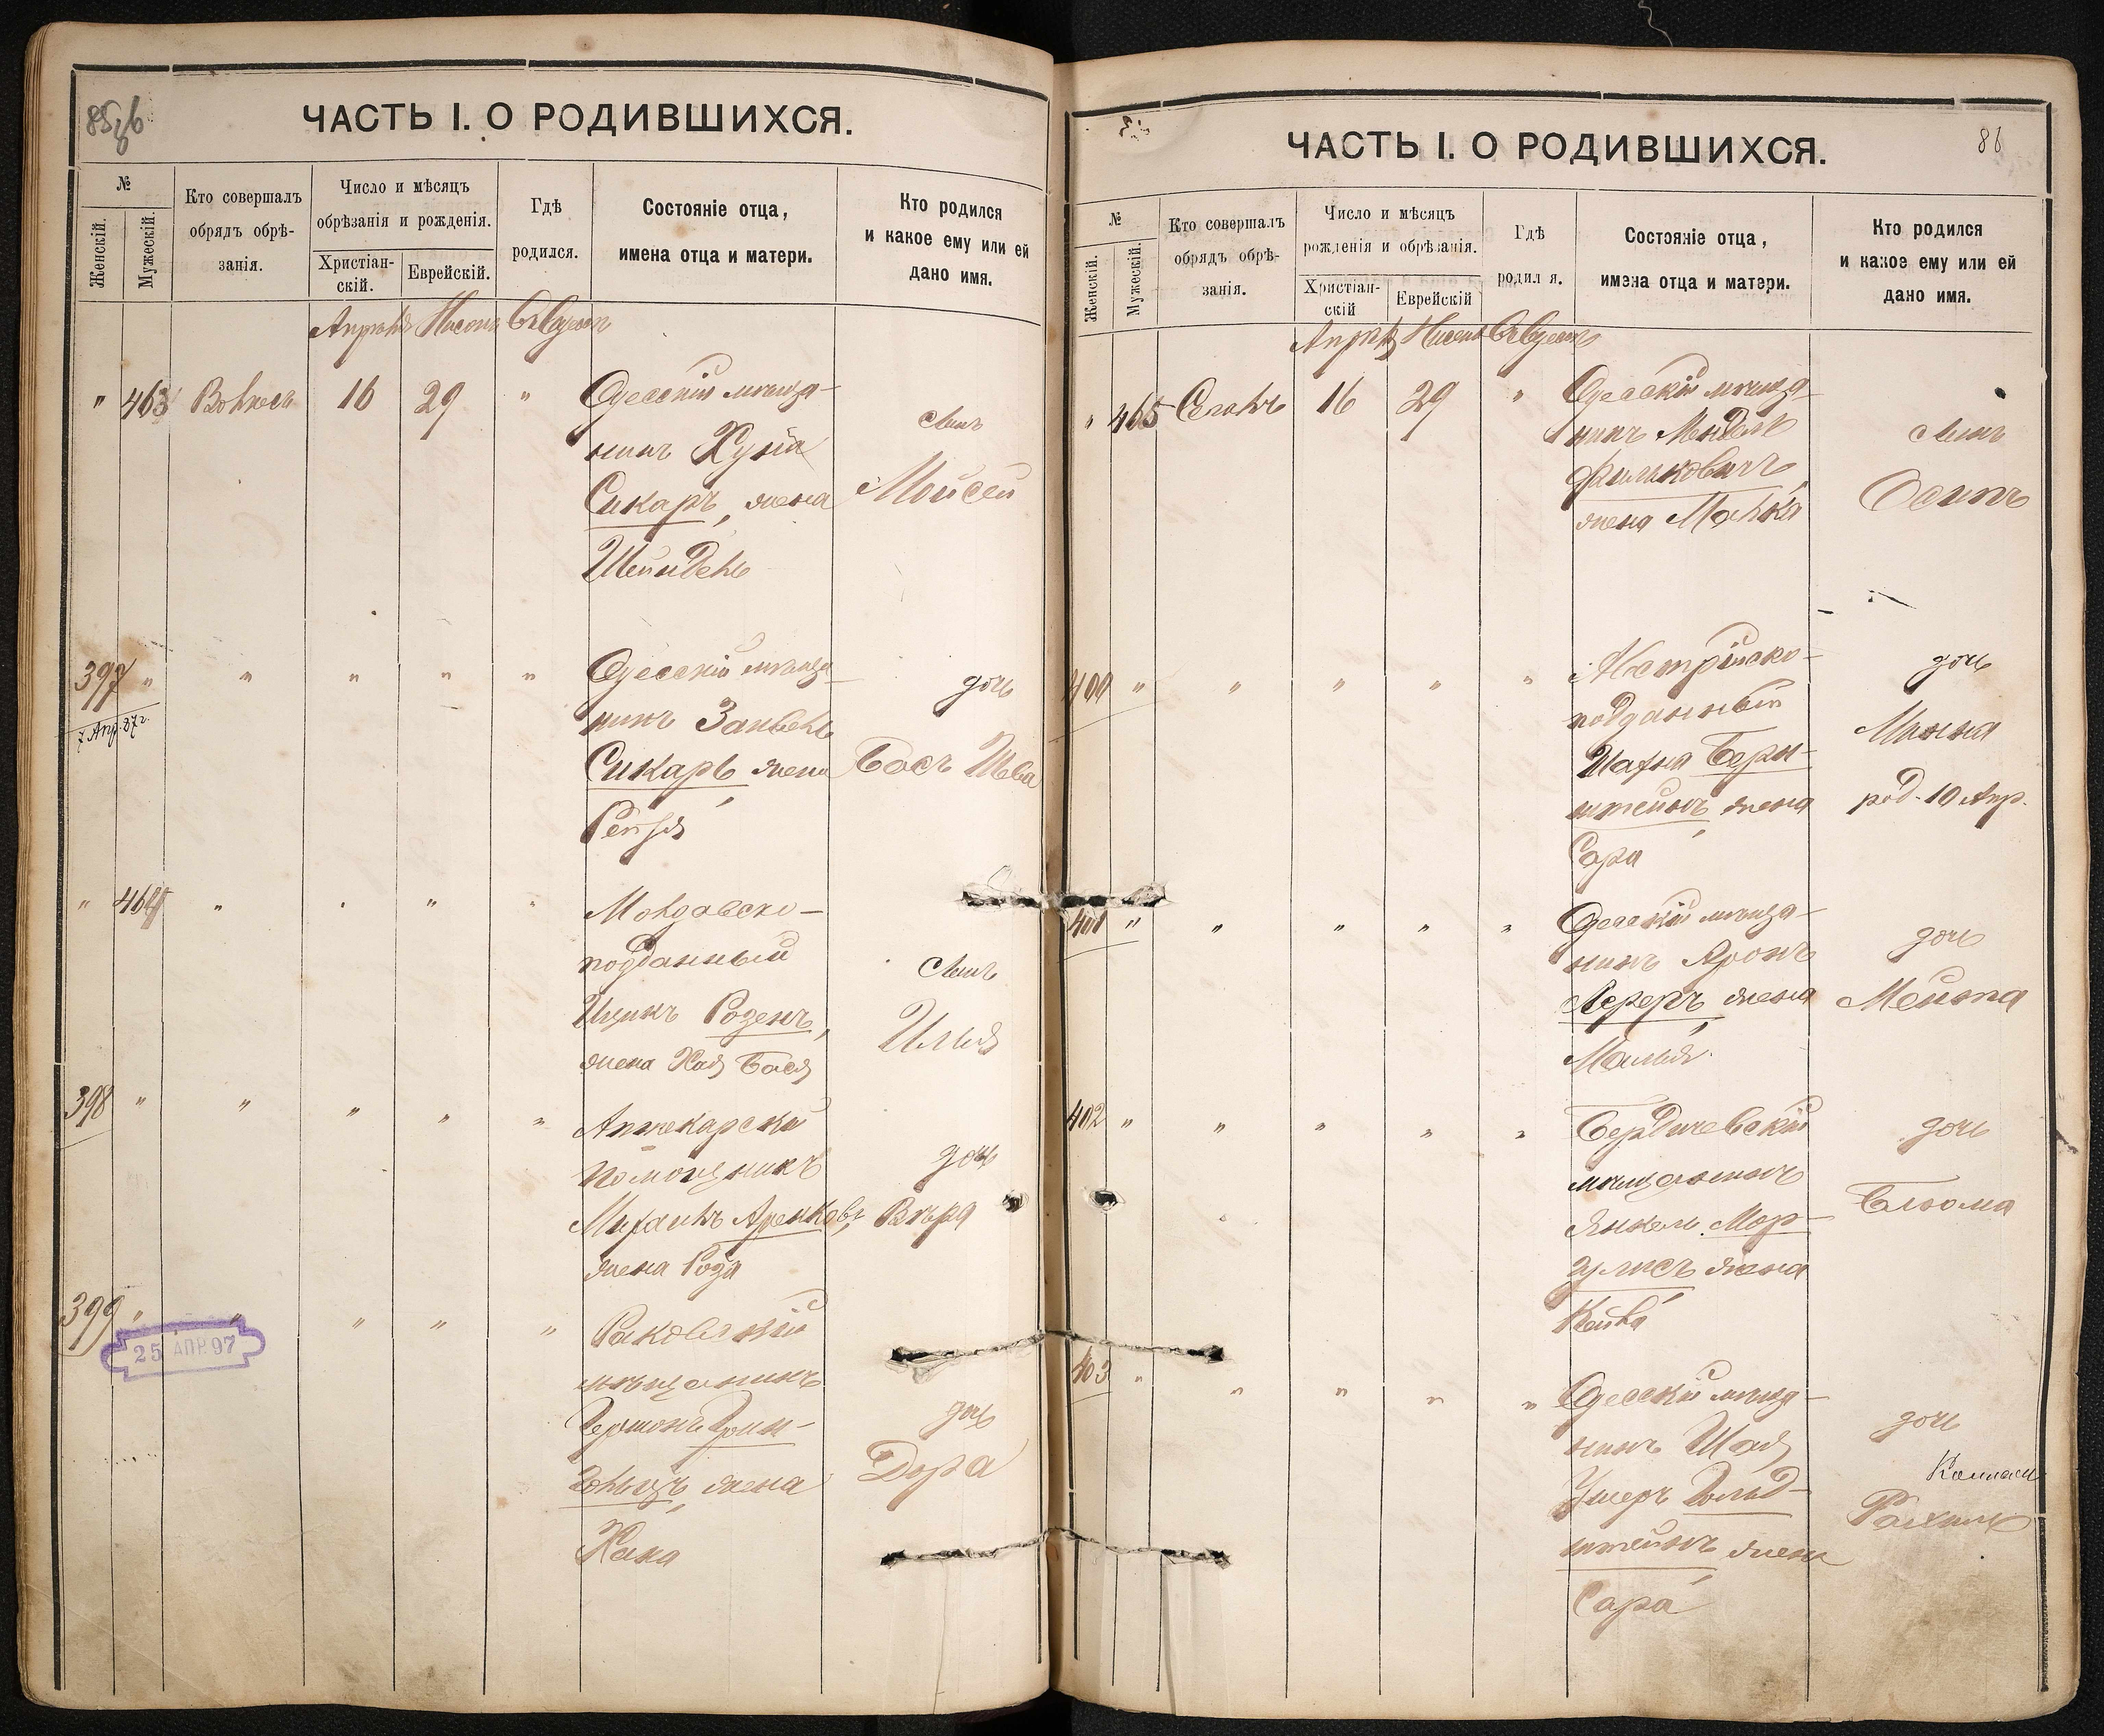 85об
ЧАСТЬ I. О РОДИВШИХСЯ.
№
Женскій.
Мужескій.
Кто совершалъ
обрядъ обрѣ-
занія.
Число и мѣсяцъ
обрѣзанія и рожденія.
Христіан-
скій.
Еврейскій.
Гдѣ
родился.
Состояніе отца,
имена отца и матери.
Кто родился
и какое ему или ей
дано имя.
Апрѣля Нисона Въ Одессѣ
" 463 16 29 " Одесскій мѣща-
нинъ Хуна
Сикаръ, жена
Шейндель
Сынъ
Мойсей
397 " " " " " Одесскій мѣща-
7 Апр. 87 г.
нинъ Занвель
Сикаръ, жена
Рейзя
дочь
Бася Шева
" 464 " " " Молдавско-
подданный
Ицикъ Розенъ,
жена Хая Бася
Сынъ
Илья
398 " " " " " Аптекарскій
помощникъ
Михаилъ
жена Роза
дочь
Вѣра
399 " " " " " Раковскій
мѣщанинъ
Гершонъ Грин-
жена
Хана
дочь
Дора
25 АПР 97
86
ЧАСТЬ I. О РОДИВШИХСЯ.
№
Женскій.
Мужескій.
Кто совершалъ
обрядъ обрѣ-
занія.
Число и мѣсяцъ
рожденія и обрѣзанія.
Христіан-
скій
Еврейскій
Гдѣ
родил я.
Состояніе отца,
имена отца и матери.
Кто родился
и какое ему или ей
дано имя.
Апрѣля Нисона Въ Одессѣ
" 465 Сегалъ 16 29 " Одесскій мѣща-
нинъ Мендель
Фальковичъ,
жена Малка
Сынъ
Осипъ
400 " " " " " Австрійско-
подданный
Шахна Берн-
штейнъ, жена
Сара
дочь
Минна
род. 10 Апр.
401 " " " " " Одесскій мѣща-
нинъ Аронъ
Лереръ, жена
Малья
дочь
Мейта
402 " " " " " Бердичевскій
мѣщанинъ
Янкель Мар-
гулисъ, жена
Кейва
дочь
Блюма
403 " " " " " Одесскій мѣща-
нинъ Шая
Ушеръ Гольд-
штейнъ, жена
Сара
дочь
Рахиль